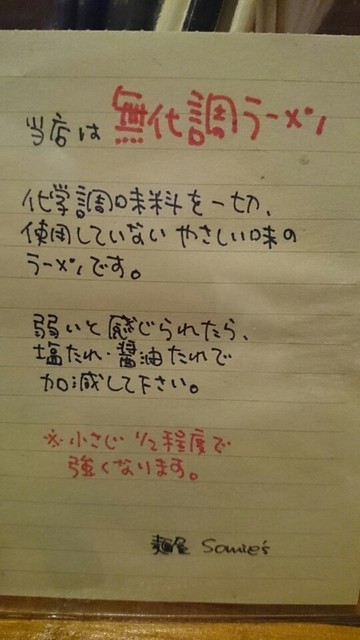 当店は 無化調ラーメン
化学調味料を一切、
使用していない やさしい味の
ラーメンです。
弱いと感じられたら、
塩たれ・醤油たれで
加減して下さい。
※小さじ 1/2程度で
強くなります。
麺屋 Somie's